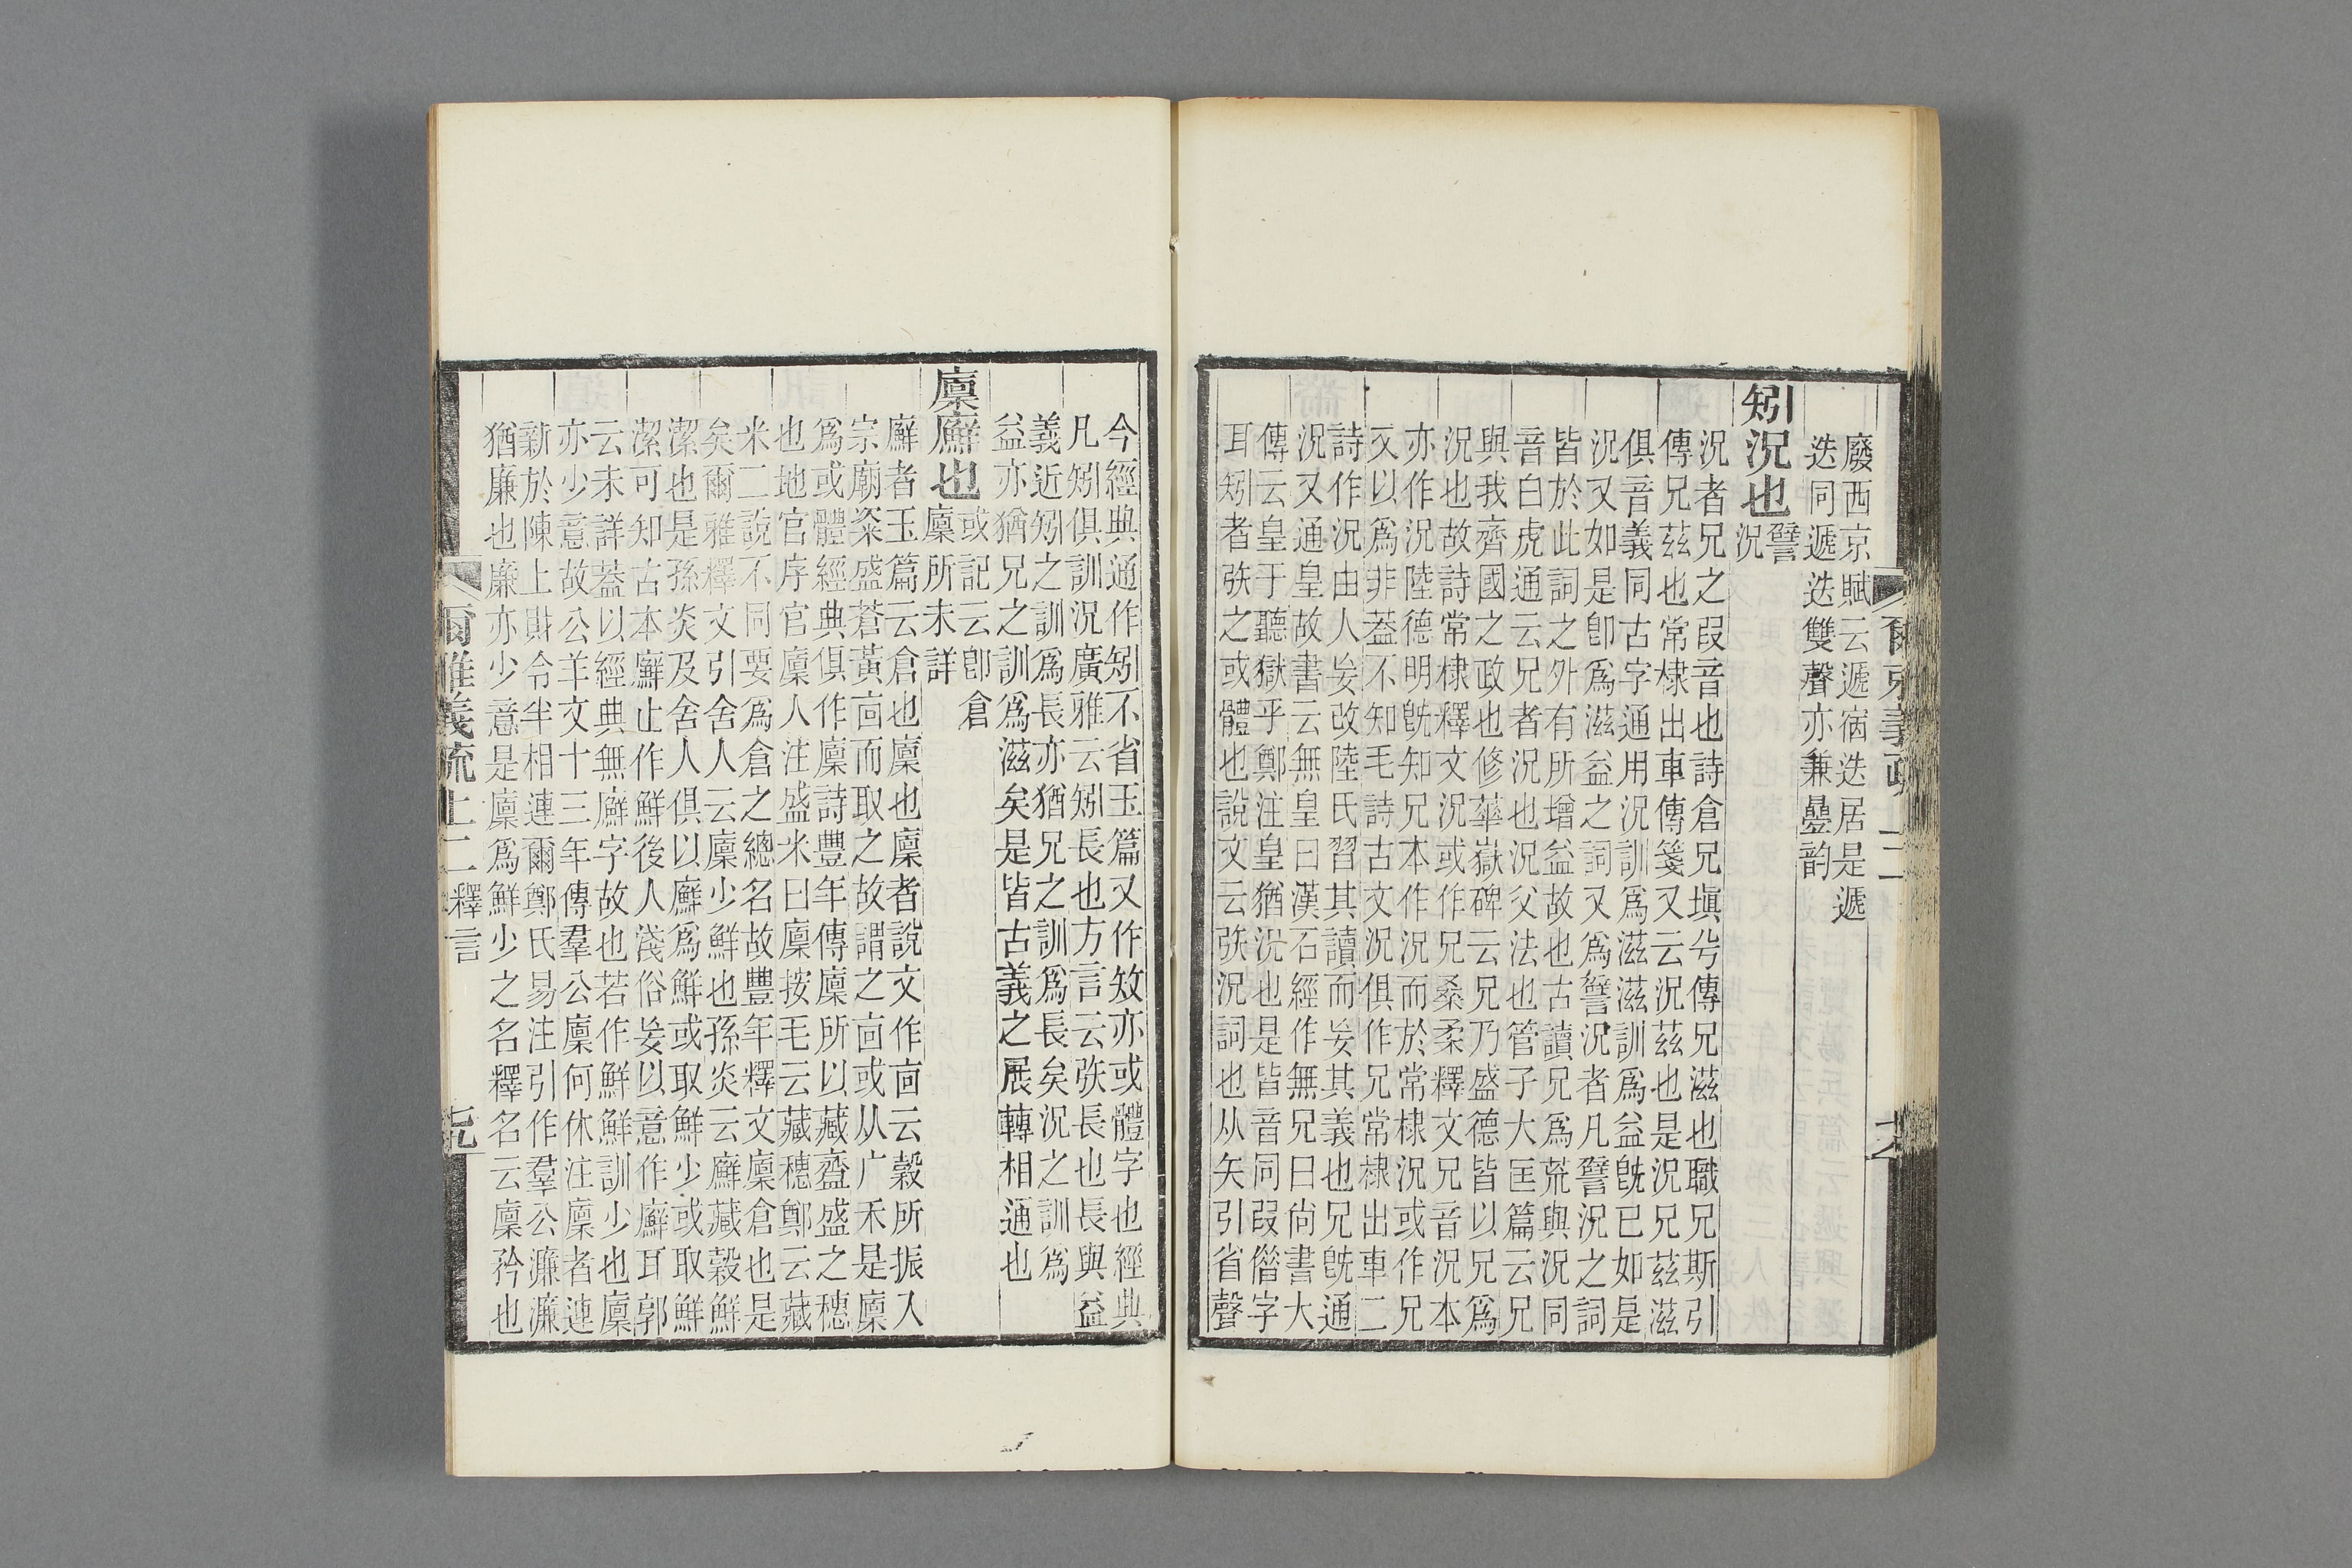 廢西京賦云遞宿迭居是遞
迭同遞迭雙聲亦兼曡韵
矧況也譬況
況者兄之叚音也詩倉兄塡兮傳兄滋也職兄斯引
傳兄茲也常棣出車傳箋又云況茲也是況兄茲滋
俱音義同古字通用況訓爲滋滋訓爲益旣已如是
況又如是卽爲滋益之詞又爲譬況者凡譬況之詞
皆於此詞之外有所增益故也古讀兄爲荒與況同
音白虎通云兄者況也況父法也管子大匡篇云兄
與我齊國之政也修華嶽碑云兄乃盛德皆以兄爲
況也故詩常棣釋文況或作兄桑柔釋文兄音況本
亦作況陸德明旣知兄本作況而於常棣況或作兄
又以爲非葢不知毛詩古文況俱作兄常棣出車二
詩作況由人妄改陸氏習其讀而妄其義也兄旣通
況又通皇故書云無皇曰漢石經作無兄曰尙書大
傳云皇于聽獄乎鄭注皇猶況也是皆音同叚僭字
耳矧者矤之或體也說文云矤況詞也从矢引省聲
爾雅義疏 上二
今經典通作矧不省玉篇又作亦或體字也經典
凡矧俱訓況廣雅云矧長也方言云矤長也長與益
義近矧之訓爲長亦猶兄之訓爲長矣況之訓爲
益亦猶兄之訓爲滋矣是皆古義之展轉相通也
廩廯也或記云卽倉廩所未詳
廯者玉篇云倉也廩也廩者說文作㐭云穀所振入
宗廟粢盛蒼黃㐭而取之故謂之㐭或从广禾是廩
爲或體經典俱作廩詩豐年傳廩所以藏齍盛之穗
也地官序官廩人注盛米曰廩按毛云藏穗鄭云藏
米二說不同要爲倉之總名故豐年釋文廩倉也是
矣爾雅釋文引舍人云廩少鮮也孫炎云廯藏穀鮮
潔也是孫炎及舍人俱以廯爲鮮或取鮮少或取鮮
潔可知古本廯止作鮮後人淺俗妄以意作廯耳郭
云未詳葢以經典無廯字故也若作鮮鮮訓少也廩
亦少意故公羊文十三年傳羣公廩何休注廩者連
新於陳上財令半相連爾鄭氏易注引作羣公濂濂
猶廉也廉亦少意是廩爲鮮少之名釋名云廩矜也
爾雅義疏上二 釋言